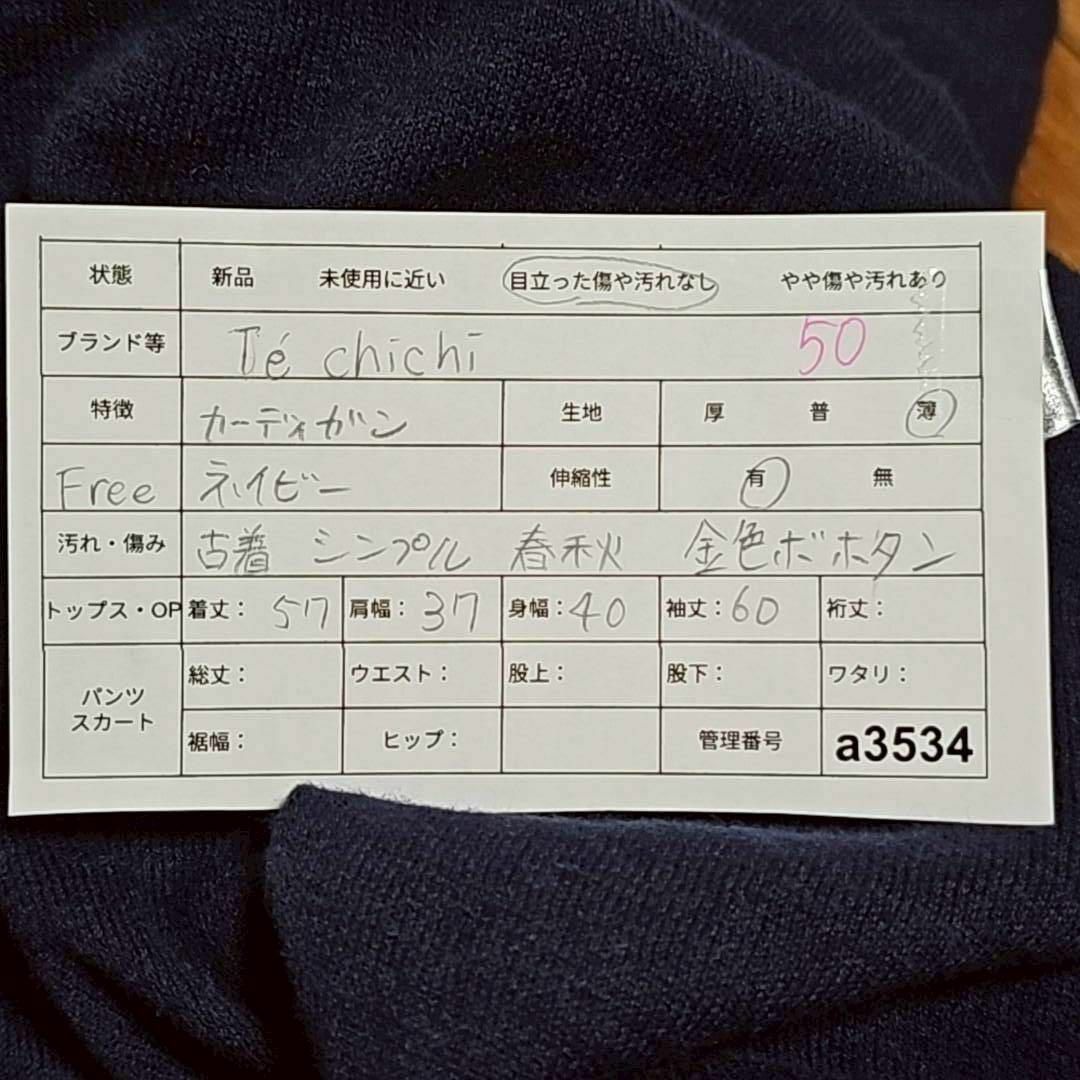 状態 新品 未使用に近い 目立った傷や汚れなし やや傷や汚れあり
ブランド等 Té chichi 50
特徴 カーディガン 生地 厚 普 薄
Free ネイビー 伸縮性 有 無
汚れ・傷み 古着 シンプル 春秋 金色ボホタン
トップス・OP 着丈: 57 肩幅: 37 身幅: 40 袖丈: 60 裄丈:
パンツ
スカート
総丈: ウエスト: 股上: 股下: ワタリ:
裾幅: ヒップ: 管理番号 a3534